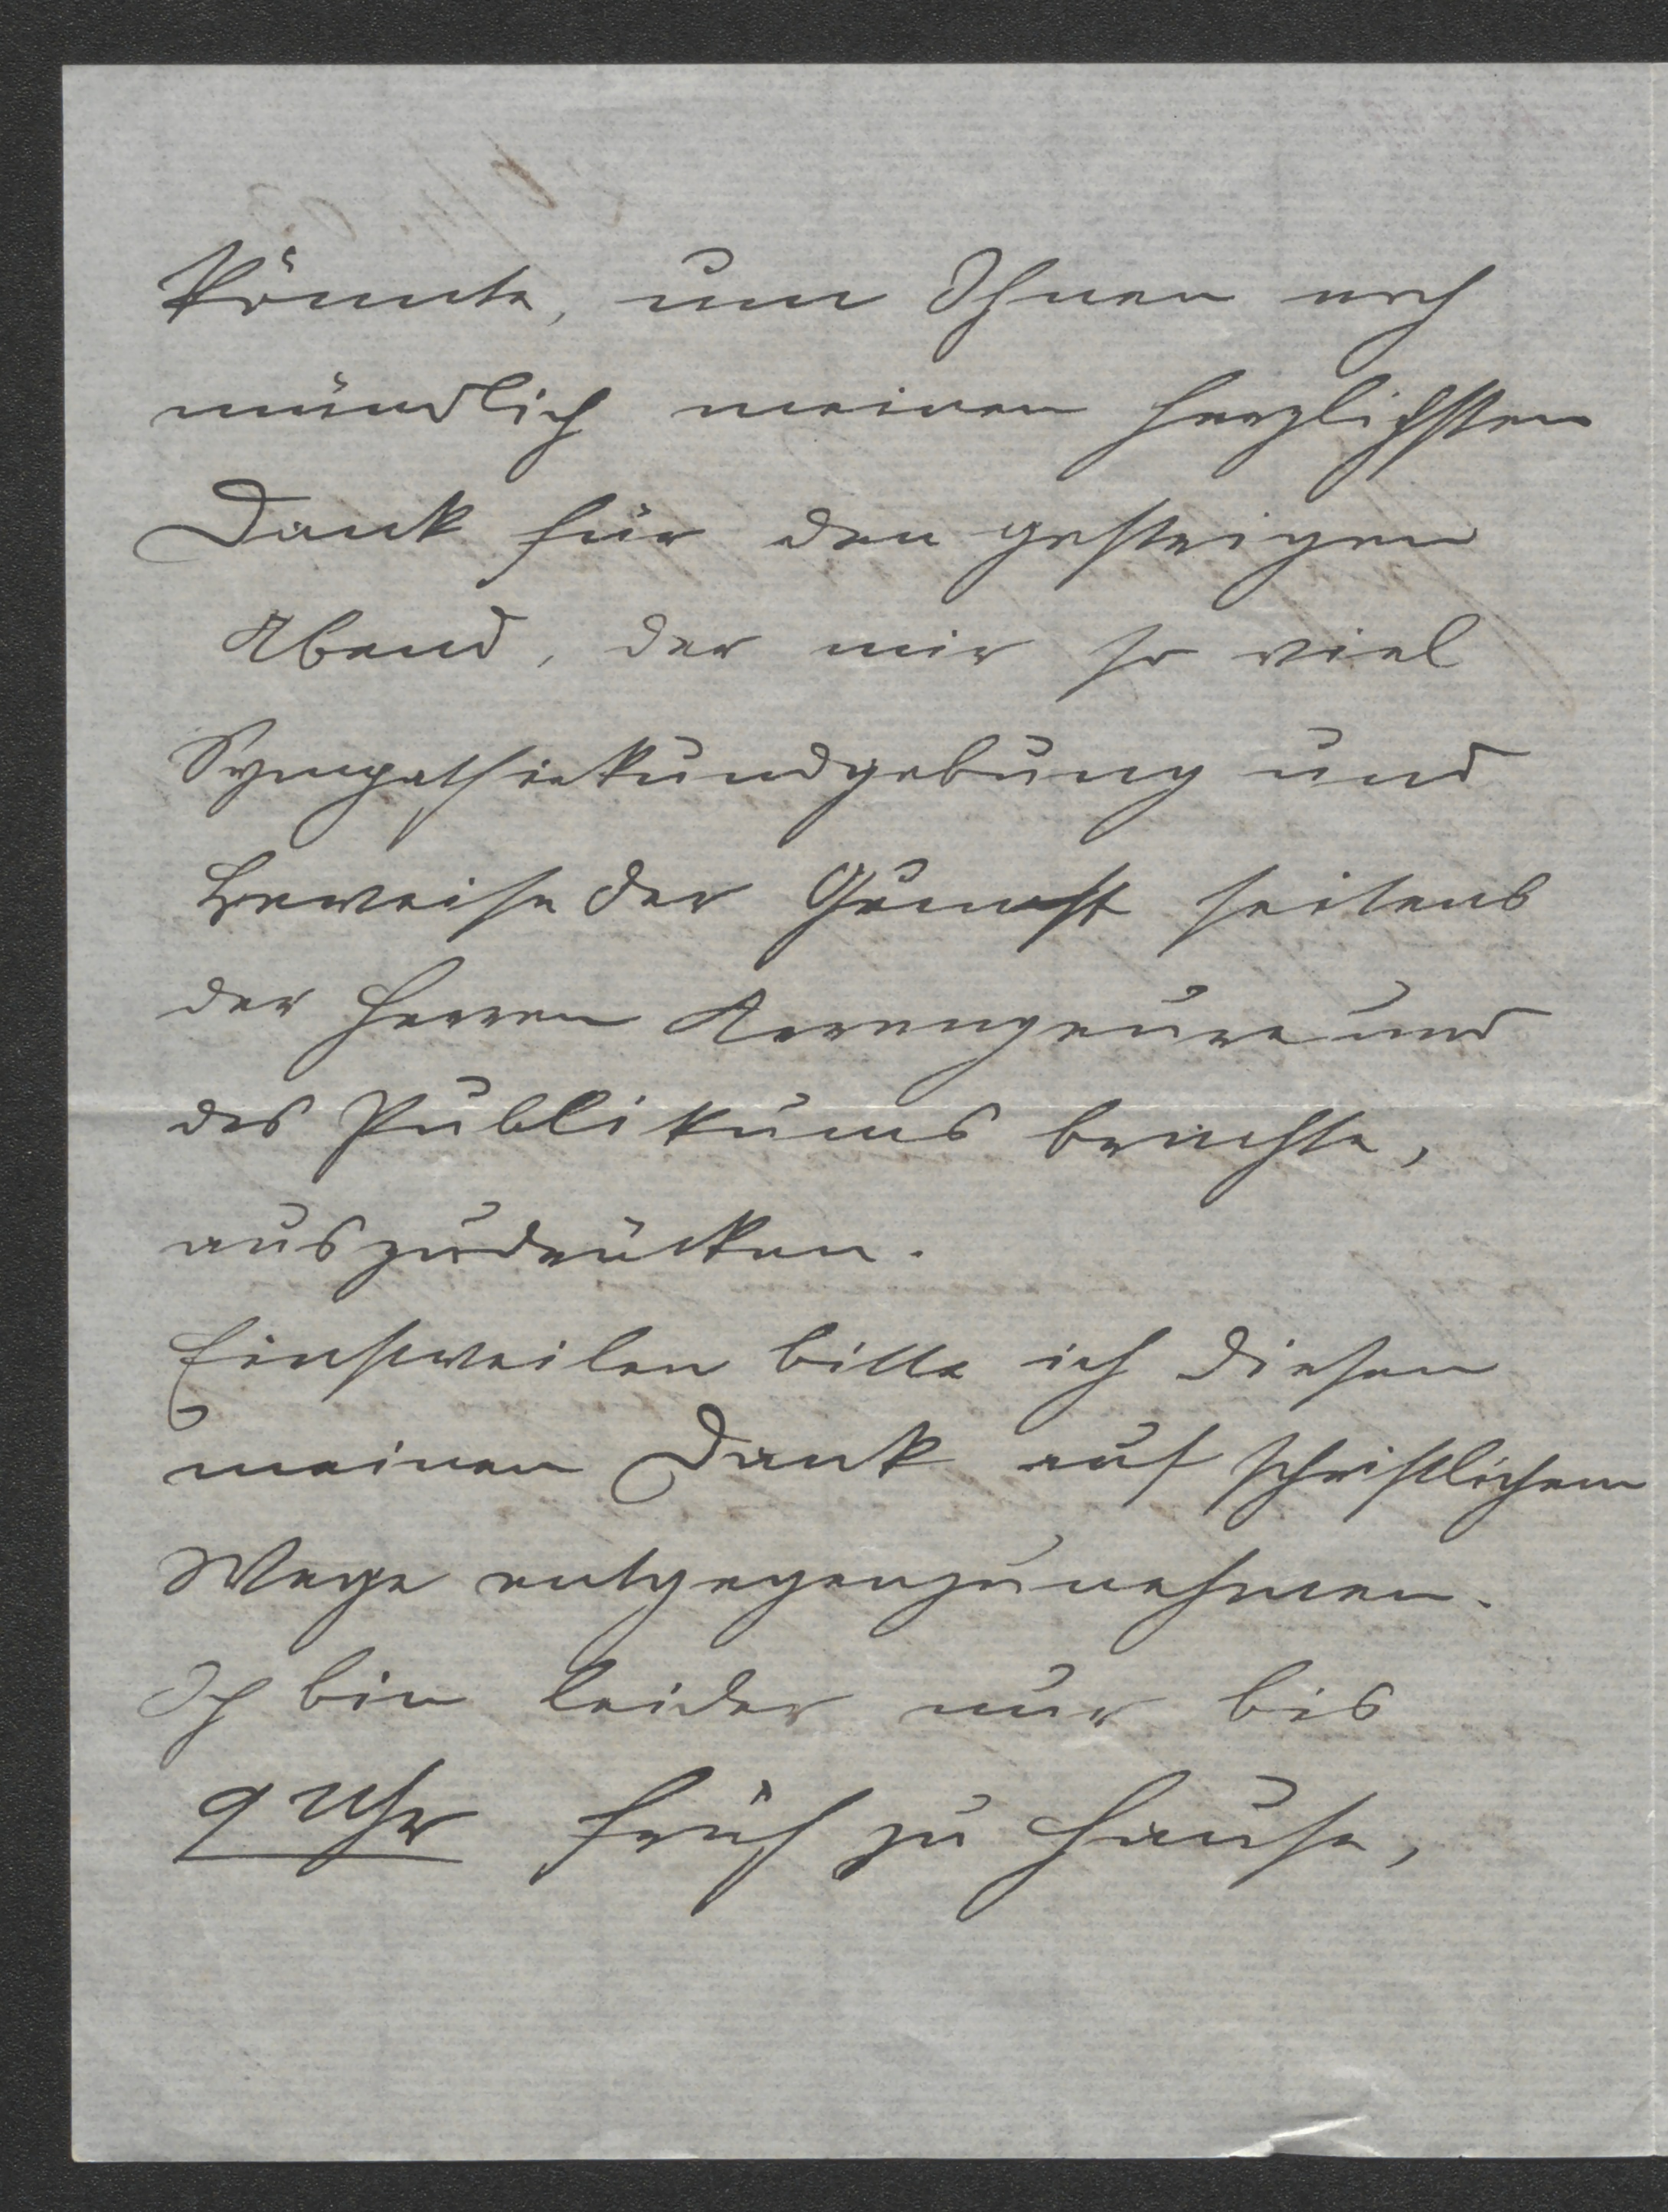 könnte, um Ihnen noch
mündlich meinen herzlichsten
Dank für den gestrigen
Abend, der mir so viel
Sympathiekundgebung und
Beweise der Gunst seitens
der Herren Arrengeure und
des Publikums brachte,
auszudrücken.
Einstweilen bitte ich diesen
meinen Dank auf schriftlichem
Wege entgegenzunehmen.
Ich bin leider nur bis
9 Uhr früh zu Hause,